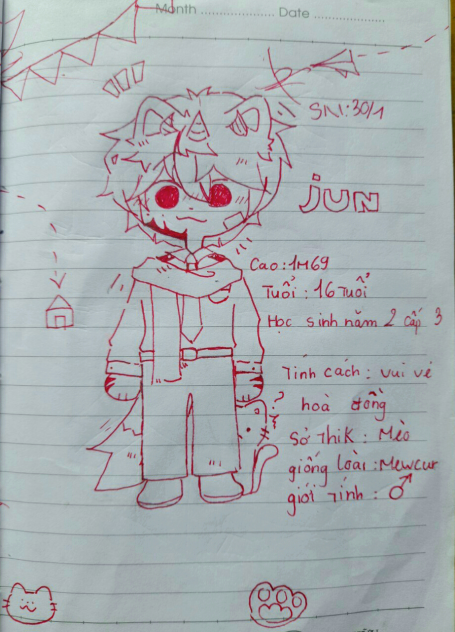 Month .................... Date ....................
SN:30/1
JUN
Cao:1M69
Tuổi : 16 Tuổi
Học sinh năm 2 cấp 3
Tính cách : vui vẻ
hoà đồng
Sở Thik : Mèo
giống loài : Mewcur
giới Tính : ♂